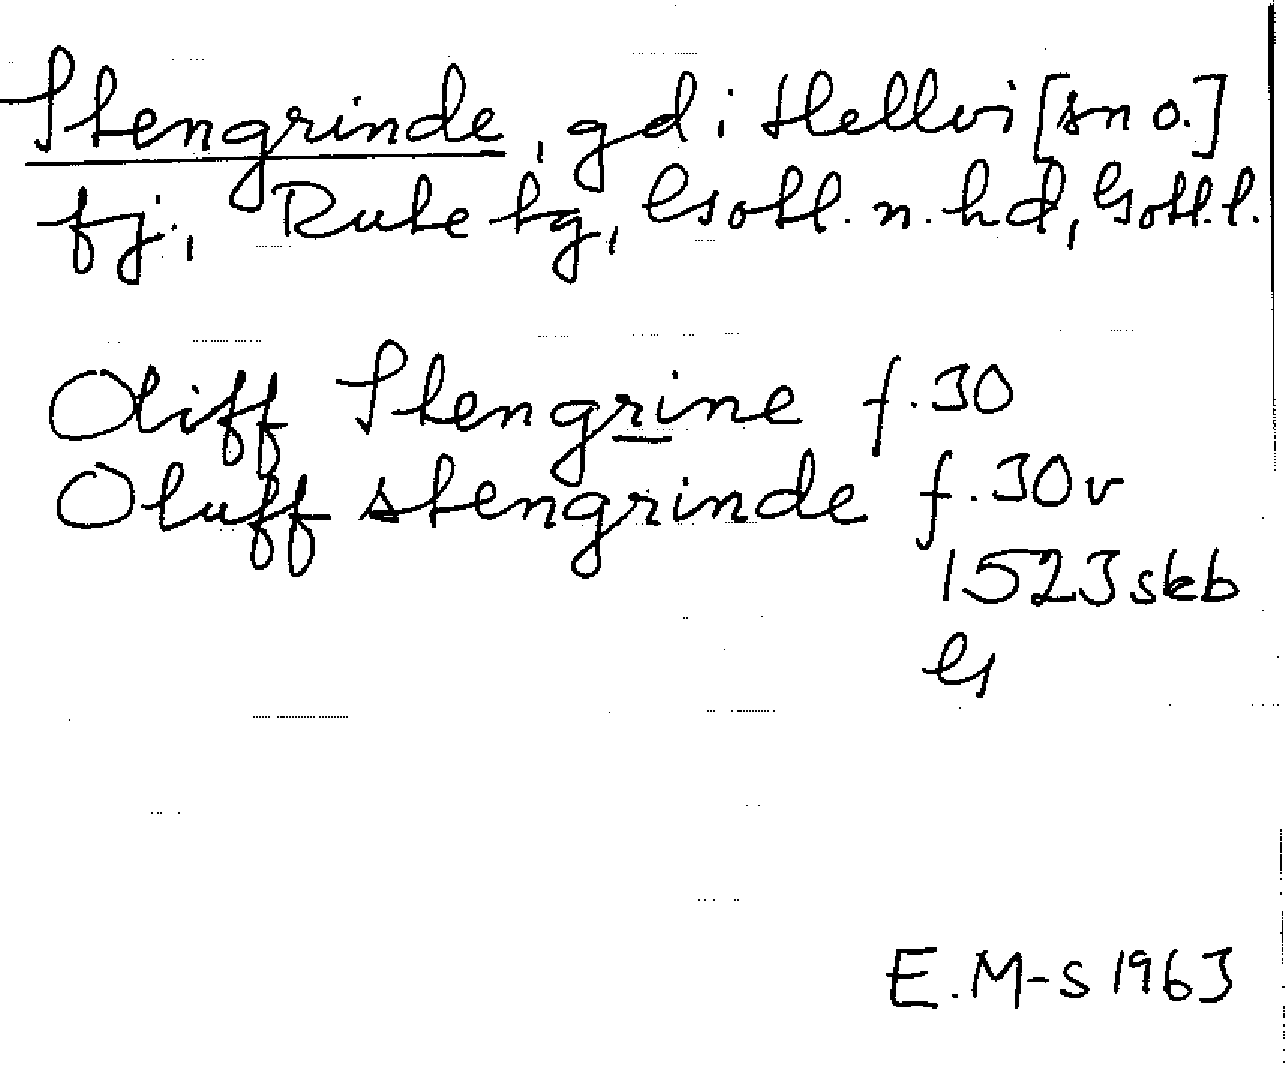 Stengrinde, gd i Hellvi [sn o.]
fj., Rute tg, Gotl. n. hd, Gotl. l.
Oliff Stengrine f. 30
Oluff stengrinde f. 30v
1523 skb
G
E. M-s 1963